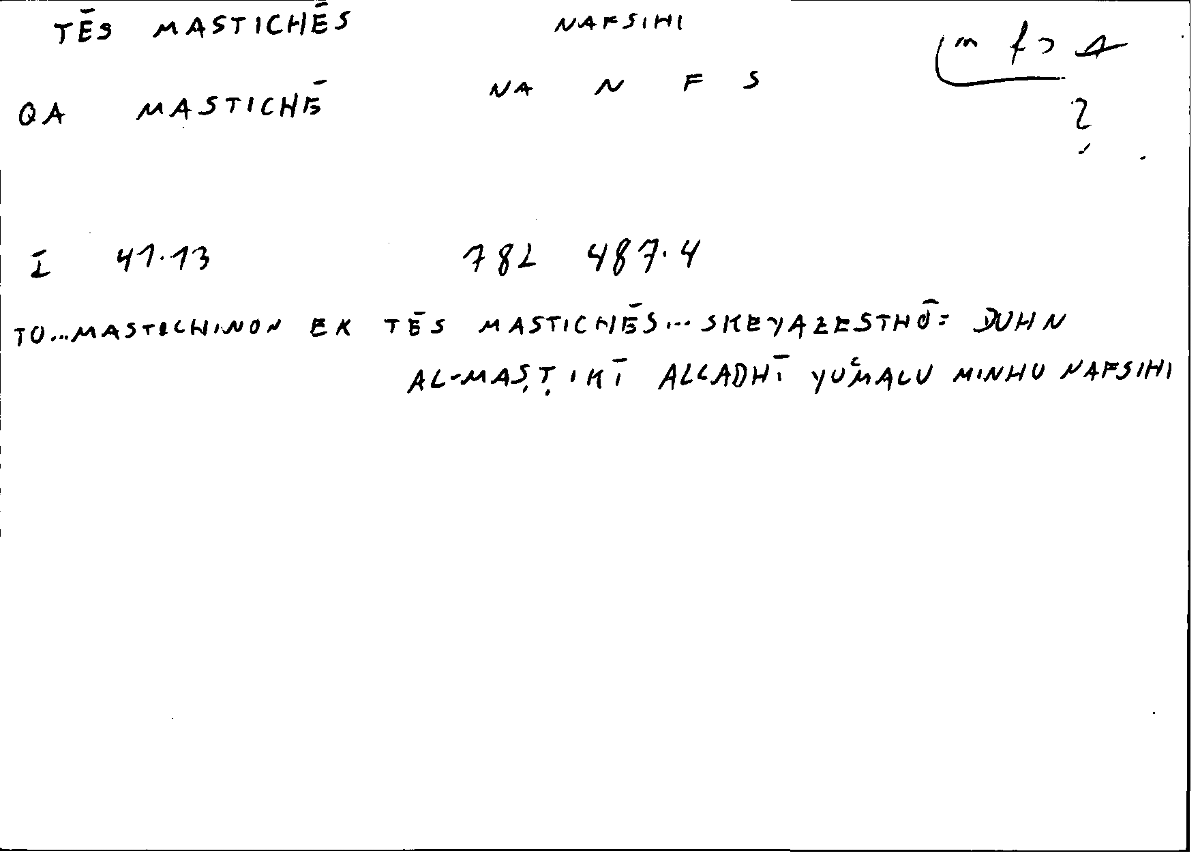 TĒS MASTICHĒS NAFSIHI
QA MASTICHĒ NA N F S
I 41.13 782 487.4
TO...MASTICHINON EK TĒS MASTICHĒS... SKEYAZESTHŌ= DUHN
AL-MAṢṬIKĪ ALLADHĪ YUʿMALU MINHU NAFSIHI